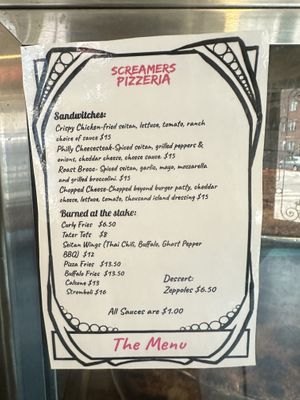 SCREAMERS
PIZZERIA
Sandwitches:
Crispy Chicken-fried seitan, lettuce, tomato, ranch
choice of sauce $15
Philly Cheesesteak-Spiced seitan, grilled peppers &
onions, cheddar cheese, cheese sauce. $15
Roast Brocc- Spiced seitan, garlic, mayo, mozzarella
and grilled broccolini. $15
Chopped Cheese-Chopped beyond burger patty, cheddar
cheese, lettuce, tomato, thousand island dressing $15
Burned at the stake:
Curly Fries $6.50
Tater Tots $8
Seitan Wings (Thai Chili, Buffalo, Ghost Pepper
BBQ) $12
Pizza Fries $13.50
Buffalo Fries $13.50
Calzone $13
Stromboli $16
Dessert:
Zeppoles $6.50
All Sauces are $1.00
The Menu